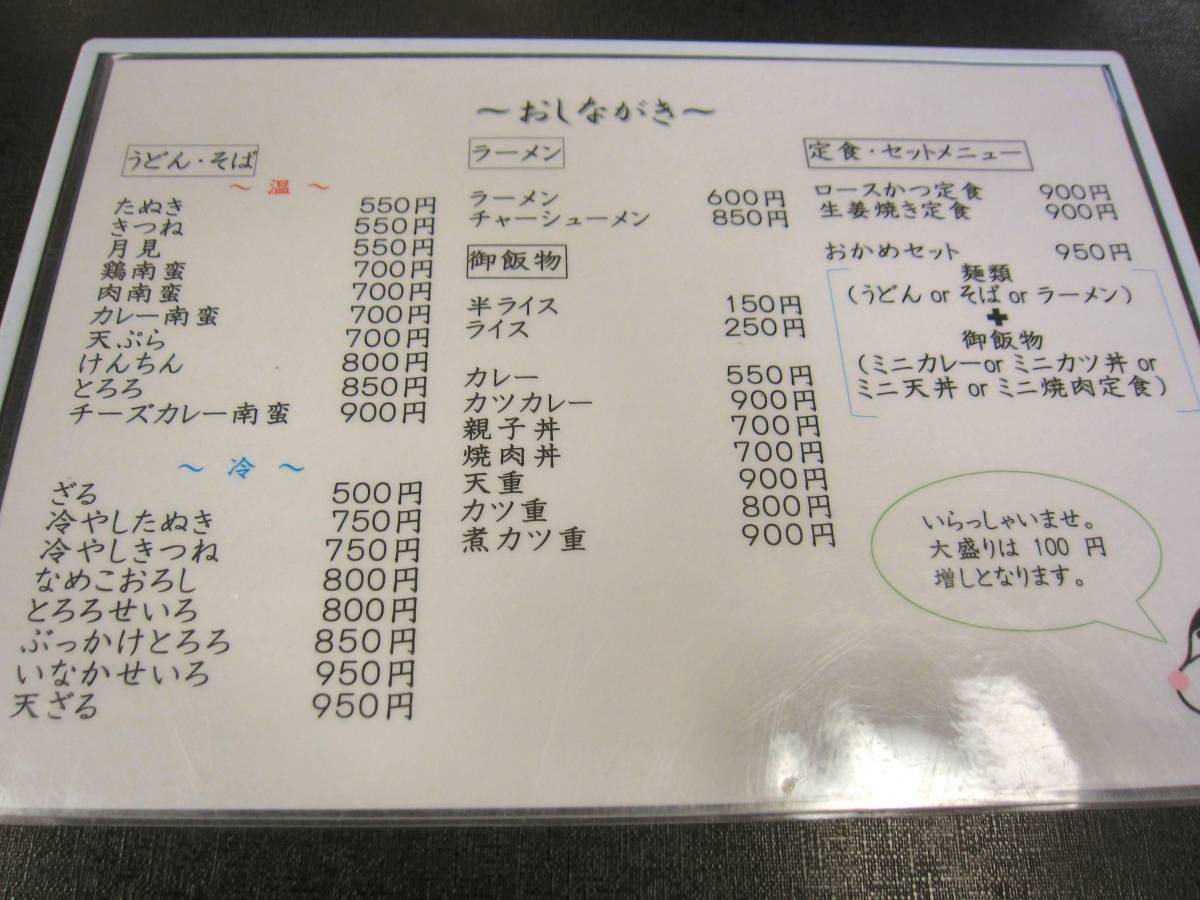 ～おしながき～
うどん・そば
～ 温 ～
たぬき 550円
きつね 550円
月見 550円
鶏南蛮 700円
肉南蛮 700円
カレー南蛮 700円
天ぷら 700円
けんちん 800円
とろろ 850円
チーズカレー南蛮 900円
～ 冷 ～
ざる 500円
冷やしたぬき 750円
冷やしきつね 750円
なめこおろし 800円
とろろせいろ 800円
ぶっかけとろろ 850円
いなかせいろ 950円
天ざる 950円
ラーメン
ラーメン 600円
チャーシューメン 850円
御飯物
半ライス 150円
ライス 250円
カレー 550円
カツカレー 900円
親子丼 700円
焼肉丼 700円
天重 900円
カツ重 800円
煮カツ重 900円
定食・セットメニュー
ロースかつ定食 900円
生姜焼き定食 900円
おかめセット 950円
麺類
(うどん or そば or ラーメン)
✚
御飯物
(ミニカレーor ミニカツ丼 or
ミニ天丼 or ミニ焼肉定食)
いらっしゃいませ。
大盛りは 100 円
増しとなります。